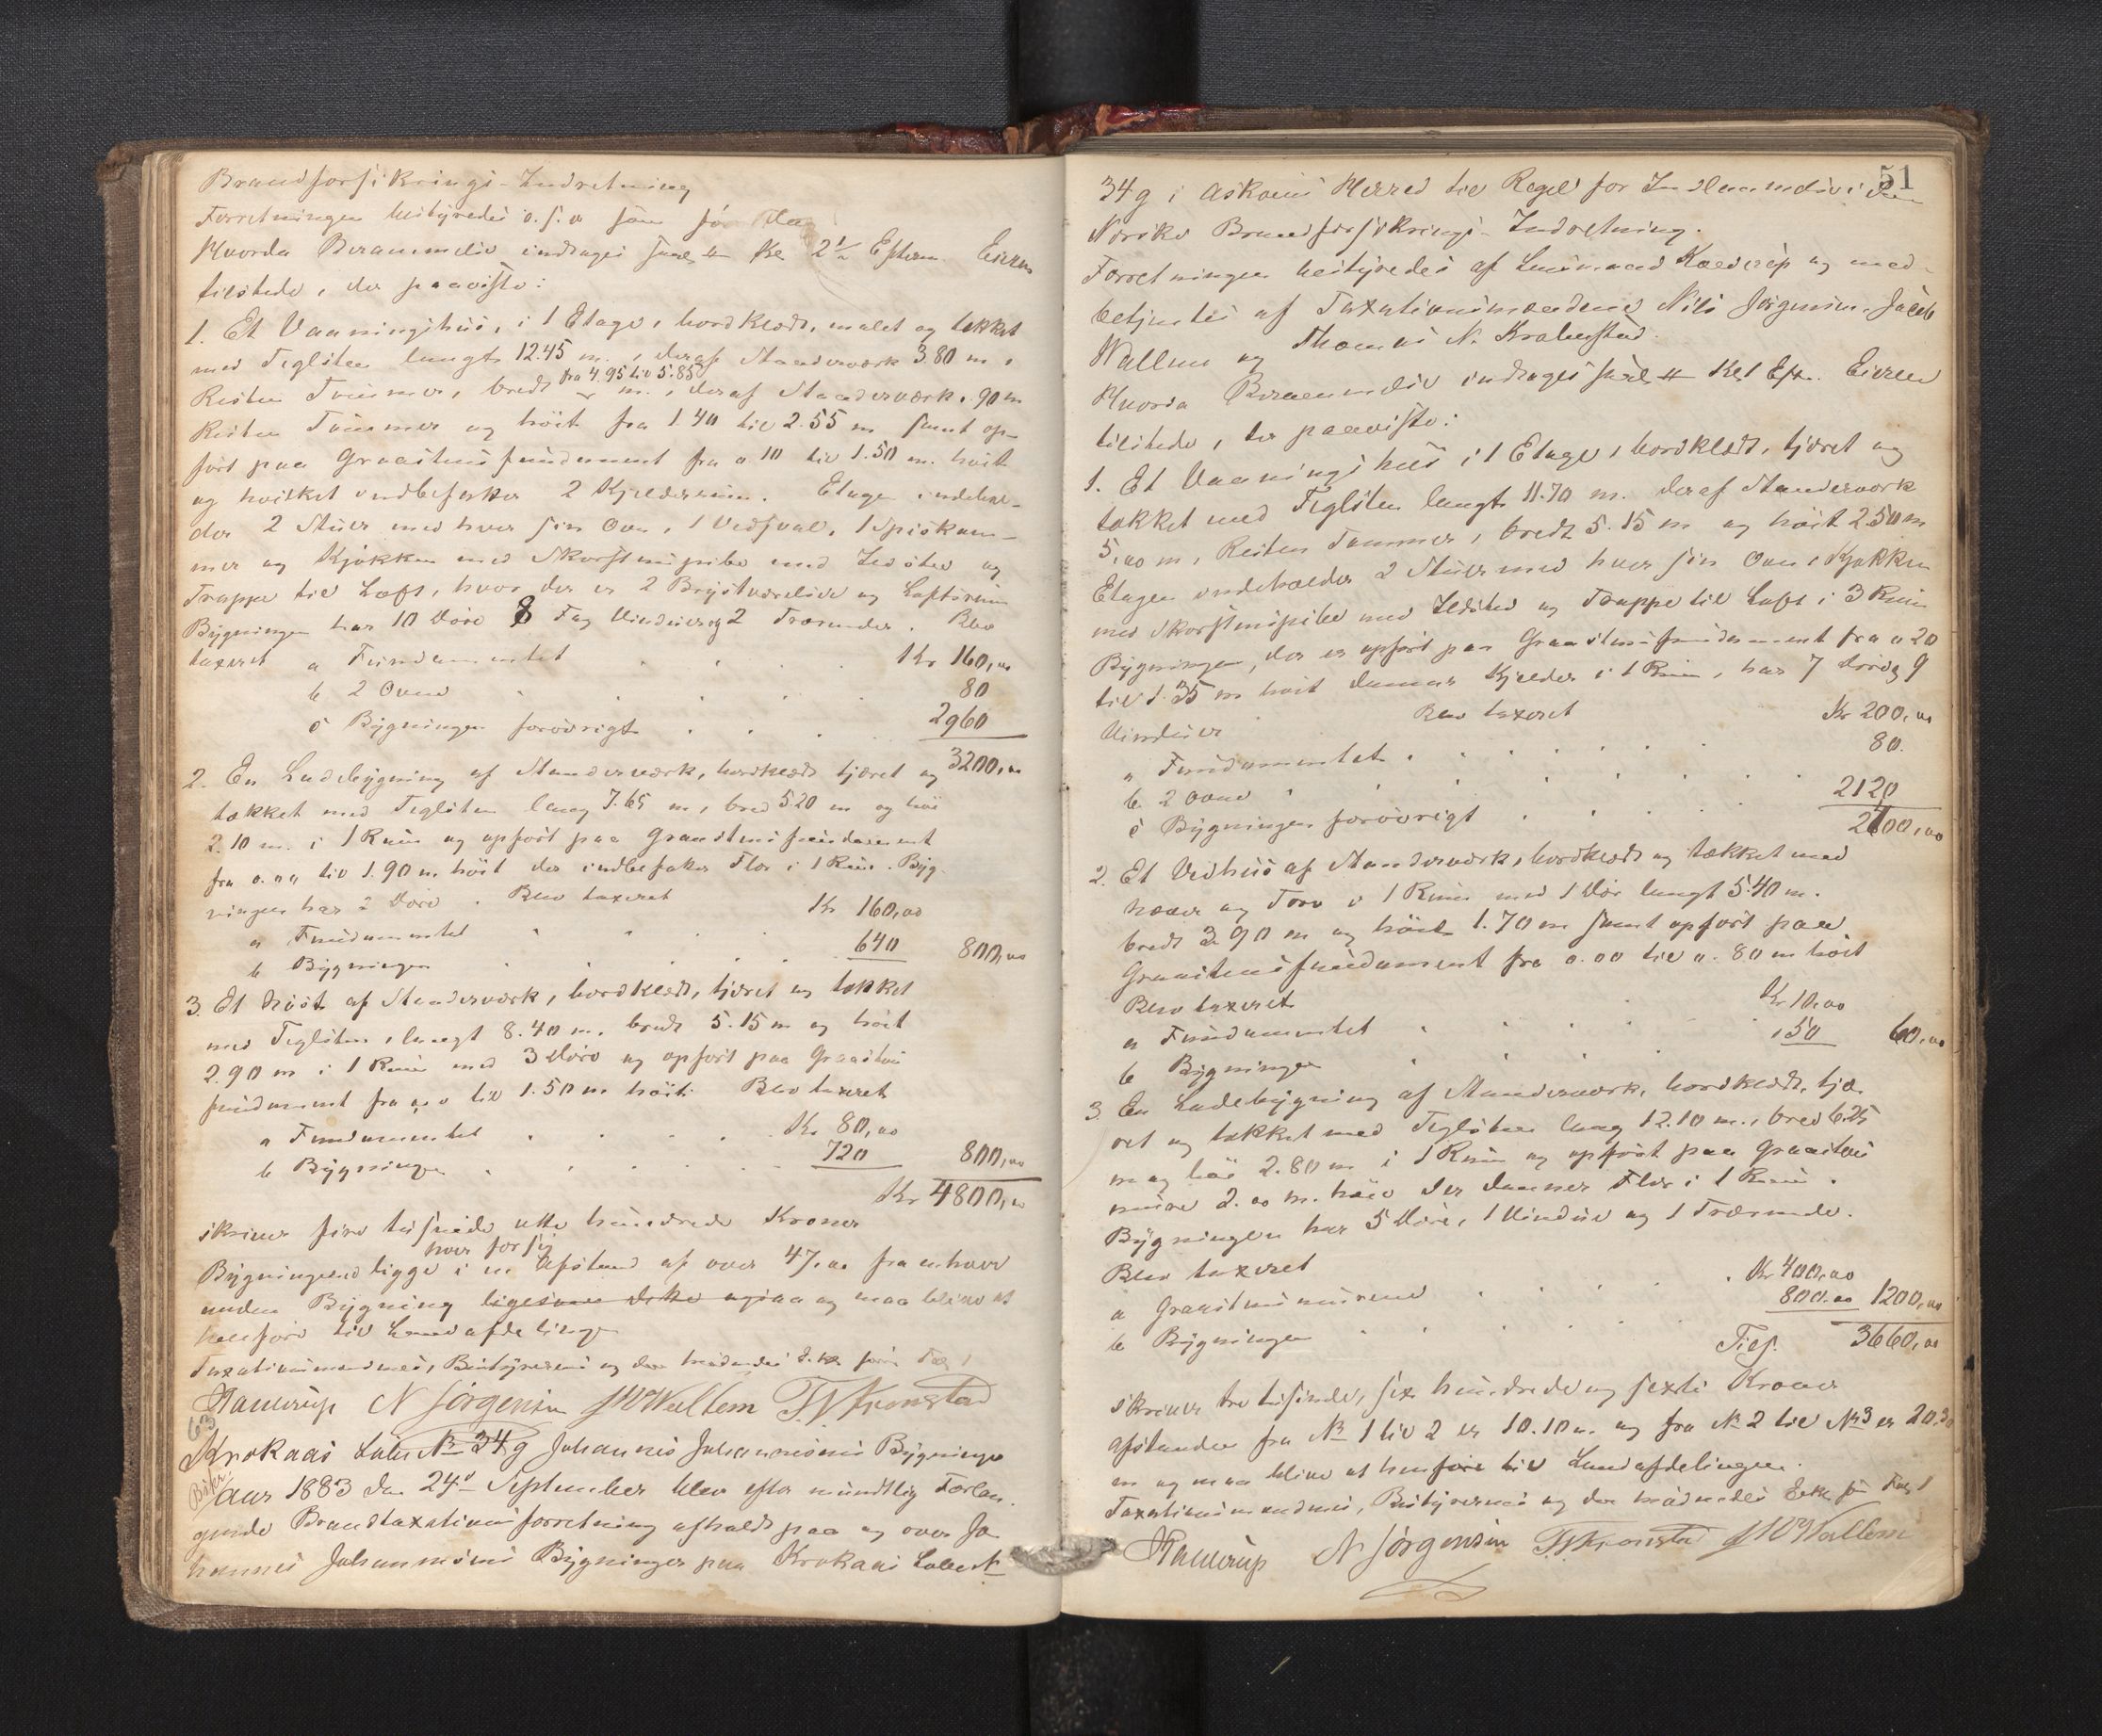 Brandforsikrings-Indretning
Forretningen bestyredes o.s.v. som før
Hvorda Berammelse indtages Kl 2½ Efterm. Eieren
tilstede, der paaviste:
1. Et Vaaningshus, i 1 Etage, bordklædt, malet og tækket
med Teglsten langt 12.45 m., deraf Standerværk 3.80 m,
fra 4.95 til 5.85
Resten Tømmer, bredt m., deraf Standerværk .90 m
Resten Tømmer og høit fra 1.40 til 2.55 m samt op-
ført paa Graastensfundament fra 0.10 til 1.50 m. høit
og hvilket indbefatter 2 Kjelderrum. Etagen indehol-
der 2 Stuer med hver sin Ovn, 1 Vedsval, 1 Spiskam-
mer og Kjøkken med Skorstenspibe med Ildsted og
Trappe til Loft, hvor der er 2 Brystværelser og Loftsrum
Bygningen har 10 Døre 8 Fag Vinduer og 2 Trærender. Blev
taxeret a Fundamentet Kr 160,00
b 2 Ovne 80
c Bygningen forøvrigt 2960
3200,00
2. En Ladebygning af Standerværk, bordklædt tjæret og
tækket med Teglsten lang 7.65 m, bred 5.20 m og høi
2.10 m. i 1 Rum og opført paa Graastensfundament
fra 0.00 til 1.90 m høit der indbefatter Flor i 1 Rum. Byg-
ningen har 2 Døre. Blev taxeret
a Fundamentet Kr 160,00
b Bygningen 640 800,00
3. Et af Standerværk, bordklædt, tjæret og tækket
med Teglsten, langt 8.40 m. bredt 5.15 m og høit
2.90 m i 1 Rum med 3 Døre og opført paa Graastens
fundament fra 0.0 til 1.50 m høit. Blev taxeret
a Fundamentet Kr 80,00
b Bygningen 720 800,00
Kr 4800,00
skriver fire tusinde otte hundrede Kroner
hver for sig
Bygningerne ligge i en Afstand af over 47,00 fra enhver
anden Bygning og maa blive at
henføre til Landafdelingen
Taxationsmændenes, Bestyrerens og
Kaurup N Jørgensen JWWallem T.N. Kronstad
63
Krokaas Løbe No 34g Johannes Johannesens Bygninger
Aar 1883 den 24de September blev efter mundtlig Forlan-
gende Brandtaxationsforretning afholdt paa og over Jo-
hannes Johannesens Bygninger paa Krokaas Løbe No
51
34g i Askøens Herred til Regel for Indlemmelse i den
Norske Brandforsikrings-Indretning.
Forretningen bestyredes af Lensmand og med-
betjentes af Taxationsmændene Nils Jørgensen, Jacob
Wallem og Thomas N.
Hvorda Berammelse indtages Kl 1 Efm. Eieren
tilstede, der paaviste:
1. Et Vaaningshus i 1 Etage, bordklædt, tjæret og
tækket med Teglsten langt 11.70 m. deraf Standerværk
5,00 m, Resten Tømmer, bredt 5.15 m og høit 2.50 m
Etagen indeholder 2 Stuer med hver sin Ovn, Kjøkken
med Skorstenspibe med Ildsted og Trappe til Loft i 3 Rum
Bygningen, der er opført paa Graastensfundament fra 0.20
til 1.35 m høit danner Kjelder i 1 Rum, har 7 Døre og 9
Vinduer Blev taxeret
a Fundamentet Kr 200,00
b. 2 Ovne 80.
c Bygningen forøvrigt 2120
2400,00
2. Et Vedhus af Standerværk, bordklædt og tækket med
Næver og Torv i 1 Rum med 1 Dør langt 5.40 m.
bredt 3.90 m og høit 1.70 m samt opført paa
Graastensfundament fra 0.00 til 0.80 m høit
Blev taxeret
a Fundamentet Kr 10,00
b Bygningen 50 60,00
3. En Ladebygning af Standerværk, bordklædt, tjæ-
ret og tækket med Teglsten lang 12.10 m., bred 6.25
m og høi 2.80 m i 1 Rum og opført paa Graastens
mure 2.00 m. høie der danner Flor i 1 Rum.
Bygningen har 5 Døre, 1 Vindue og 1 Trærende.
Blev taxeret
a Graastensmurene Kr 400,00
b Bygningen 800,00 1200,00
Tils. 3660,00
skriver tre tusinde, sex hundrede og sexti Kroner
Afstanden fra No 1 til 2 er 10.10 m. og fra No 2 til No 3 er 20.30
m og maa blive at henføre til Landafdelingen.
Taxationsmændenes, Bestyrerens og
Kaurup N Jørgensen T.N. Kronstad JWWallem